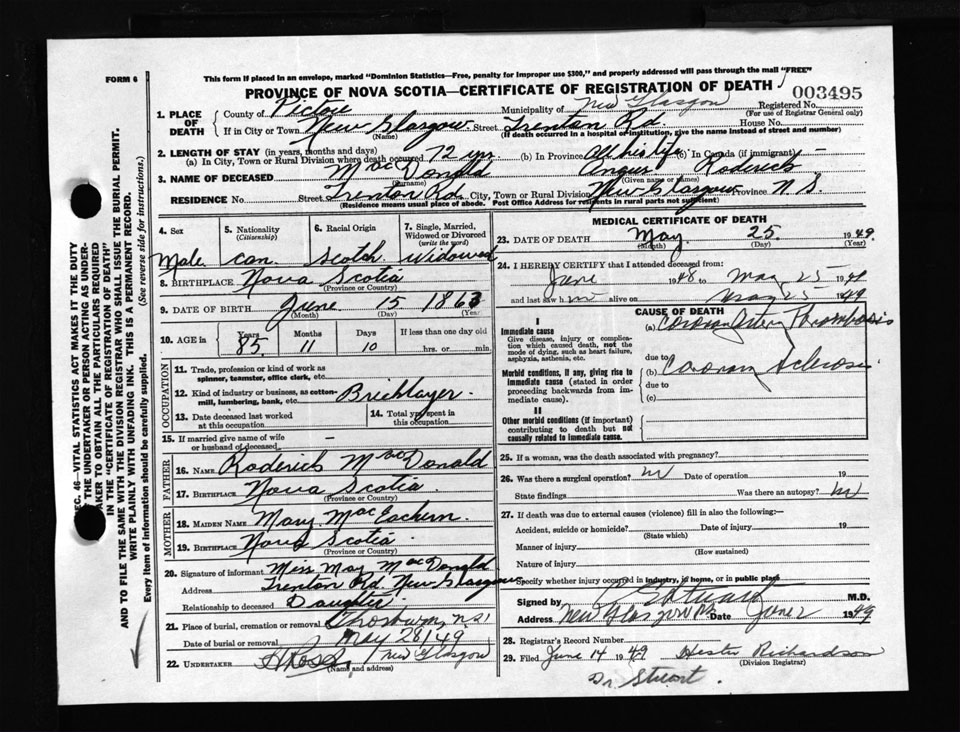 FORM 6
This form if placed in an envelope, marked "Dominion Statistics—Free, penalty for improper use $300," and properly addressed will pass through the mail "FREE"
PROVINCE OF NOVA SCOTIA—CERTIFICATE OF REGISTRATION OF DEATH
003495
1. PLACE OF DEATH
County of Pictou Municipality of New Glasgow Registered No.
(For use of Registrar General only)
If in City or Town New Glasgow Street Trenton Rd. House No.
(Name) (If death occurred in a hospital or institution, give the name instead of street and number)
2. LENGTH OF STAY (in years, months and days)
(a) In City, Town or Rural Division where death occurred 72 (b) In Province All his life (c) In Canada (if immigrant) —
3. NAME OF DECEASED MacDonald Angus Roderick
(Surname) (Given name or names)
RESIDENCE No. Street Trenton Rd. City, Town or Rural Division New Glasgow Province N. S.
(Residence means usual place of abode. Post Office Address for residents in rural parts not sufficient)
4. Sex
Male
5. Nationality
(Citizenship)
Can.
6. Racial Origin
Scotch
7. Single, Married, Widowed or Divorced
(write the word)
Widowed
8. BIRTHPLACE Nova Scotia
(Province or Country)
9. DATE OF BIRTH June 15 1863
(Month) (Day) (Year)
10. AGE in Years Months Days If less than one day old
85 11 10 hrs. or min.
OCCUPATION
11. Trade, profession or kind of work as spinner, teamster, office clerk, etc.
12. Kind of industry or business, as cotton-mill, lumbering, bank, etc. Bricklayer
13. Date deceased last worked at this occupation
14. Total yrs. spent in this occupation
15. If married give name of wife or husband of deceased —
FATHER
16. NAME Roderick MacDonald
17. BIRTHPLACE Nova Scotia
(Province or Country)
MOTHER
18. MAIDEN NAME Mary MacEachern
19. BIRTHPLACE Nova Scotia
(Province or Country)
20. Signature of informant Miss May MacDonald
Address Trenton Rd. New Glasgow
Relationship to deceased Daughter
21. Place of burial, cremation or removal
Date of burial or removal May 28/49
22. UNDERTAKER New Glasgow
(Name and address)
MEDICAL CERTIFICATE OF DEATH
23. DATE OF DEATH May 25 1949
(Month) (Day) (Year)
24. I HEREBY CERTIFY that I attended deceased from:
June 1948 to May 25 1949
and last saw h im alive on May 25 1949
CAUSE OF DEATH
I
Immediate cause
Give disease, injury or complication which caused death, not the mode of dying, such as heart failure, asphyxia, asthenia, etc.
(a) Coronary Artery Thrombosis
due to
Morbid conditions, if any, giving rise to immediate cause (stated in order proceeding backwards from immediate cause).
(b) Coronary Sclerosis
due to
(c)
II
Other morbid conditions (if important) contributing to death but not causally related to immediate cause.
25. If a woman, was the death associated with pregnancy?
26. Was there a surgical operation? No Date of operation 19
State findings Was there an autopsy? No
27. If death was due to external causes (violence) fill in also the following:—
Accident, suicide or homicide? Date of injury 19
(State which)
Manner of injury
(How sustained)
Nature of injury
Specify whether injury occurred in industry, in home, or in public place
Signed by Stuart M.D.
Address New Glasgow N.S. Date June 2 1949
28. Registrar's Record Number
29. Filed June 14 1949 Hester Richardson
(Division Registrar)
Dr. Stuart.
SEC. 46—VITAL STATISTICS ACT MAKES IT THE DUTY
OF THE UNDERTAKER OR PERSON ACTING AS UNDERTAKER TO OBTAIN ALL THE PARTICULARS REQUIRED
IN THE "CERTIFICATE OF REGISTRATION OF DEATH"
AND TO FILE THE SAME WITH THE DIVISION REGISTRAR WHO SHALL ISSUE THE BURIAL PERMIT.
WRITE PLAINLY WITH UNFADING INK. THIS IS A PERMANENT RECORD.
Every item of information should be carefully supplied. (See reverse side for instructions.)